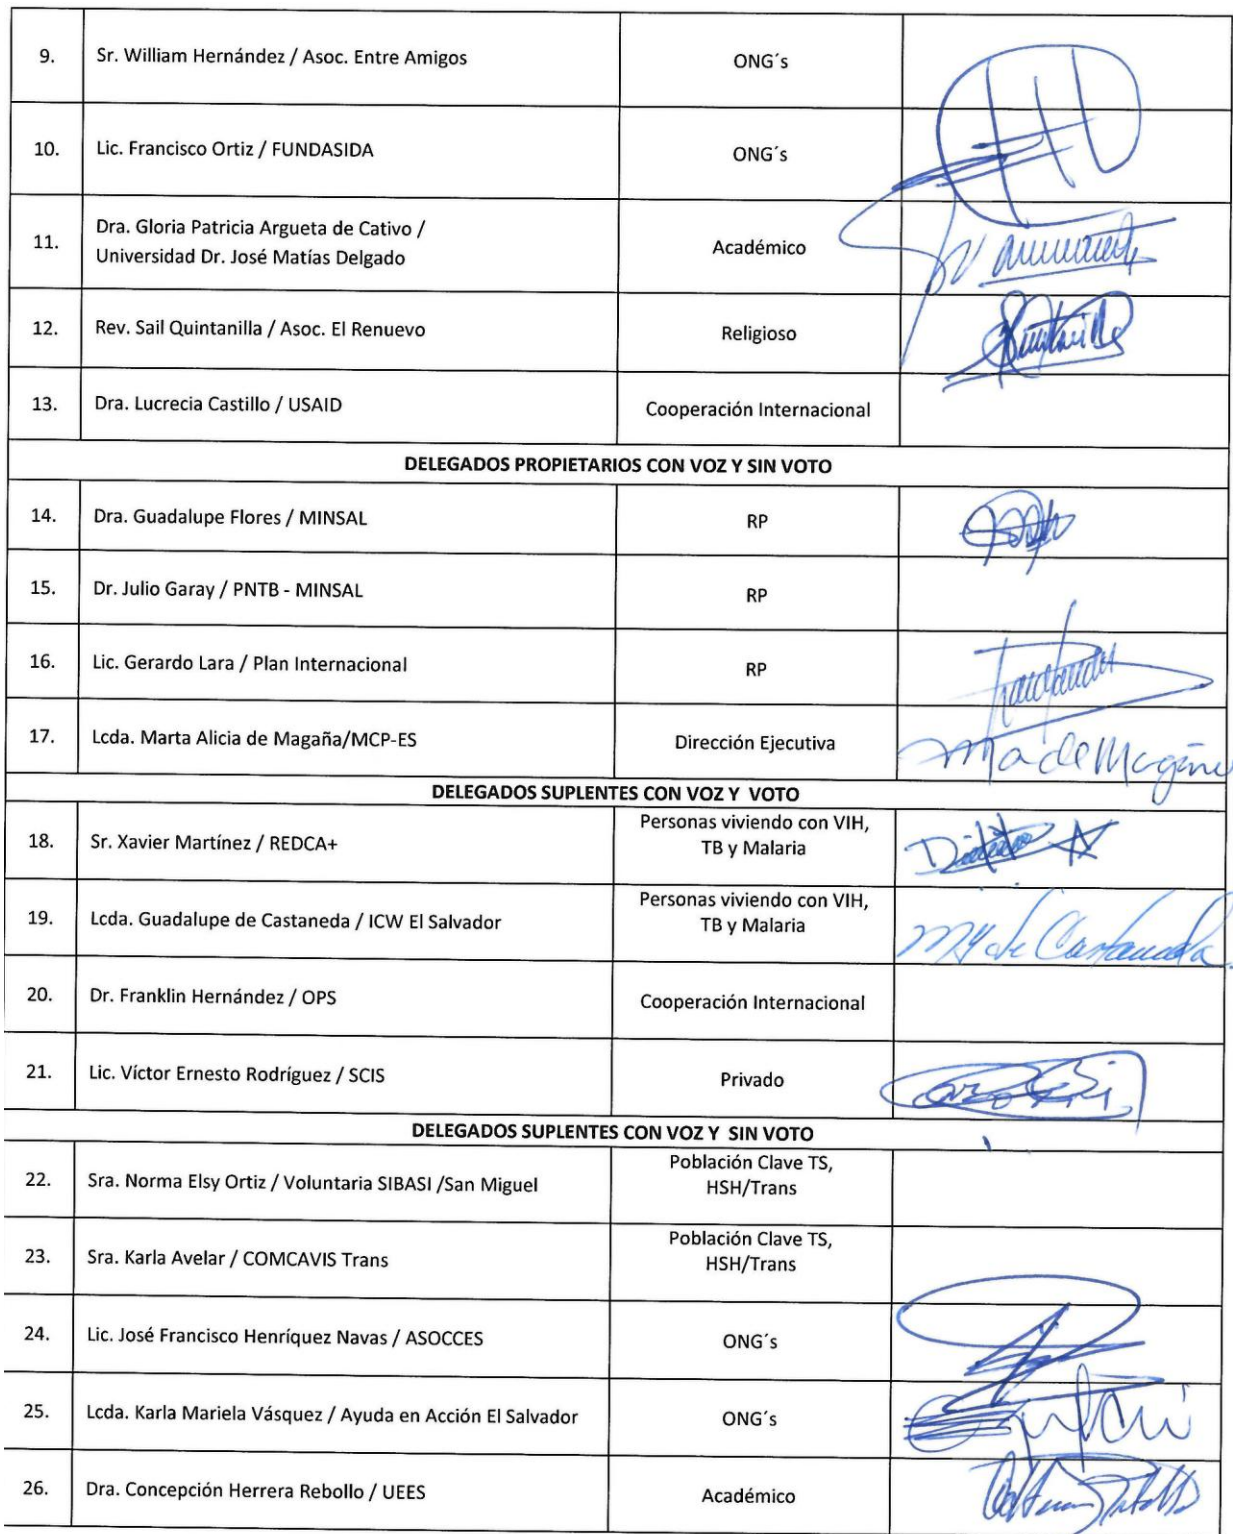 9. Sr. William Hernández / Asoc. Entre Amigos ONG´s
10. Lic. Francisco Ortiz / FUNDASIDA ONG´s
11. Dra. Gloria Patricia Argueta de Cativo /
Universidad Dr. José Matías Delgado Académico
12. Rev. Sail Quintanilla / Asoc. El Renuevo Religioso
13. Dra. Lucrecia Castillo / USAID Cooperación Internacional
DELEGADOS PROPIETARIOS CON VOZ Y SIN VOTO
14. Dra. Guadalupe Flores / MINSAL RP
15. Dr. Julio Garay / PNTB - MINSAL RP
16. Lic. Gerardo Lara / Plan Internacional RP
17. Lcda. Marta Alicia de Magaña/MCP-ES Dirección Ejecutiva
DELEGADOS SUPLENTES CON VOZ Y VOTO
18. Sr. Xavier Martínez / REDCA+ Personas viviendo con VIH,
TB y Malaria
19. Lcda. Guadalupe de Castaneda / ICW El Salvador Personas viviendo con VIH,
TB y Malaria
20. Dr. Franklin Hernández / OPS Cooperación Internacional
21. Lic. Víctor Ernesto Rodríguez / SCIS Privado
DELEGADOS SUPLENTES CON VOZ Y SIN VOTO
22. Sra. Norma Elsy Ortiz / Voluntaria SIBASI /San Miguel Población Clave TS,
HSH/Trans
23. Sra. Karla Avelar / COMCAVIS Trans Población Clave TS,
HSH/Trans
24. Lic. José Francisco Henríquez Navas / ASOCCES ONG´s
25. Lcda. Karla Mariela Vásquez / Ayuda en Acción El Salvador ONG´s
26. Dra. Concepción Herrera Rebollo / UEES Académico